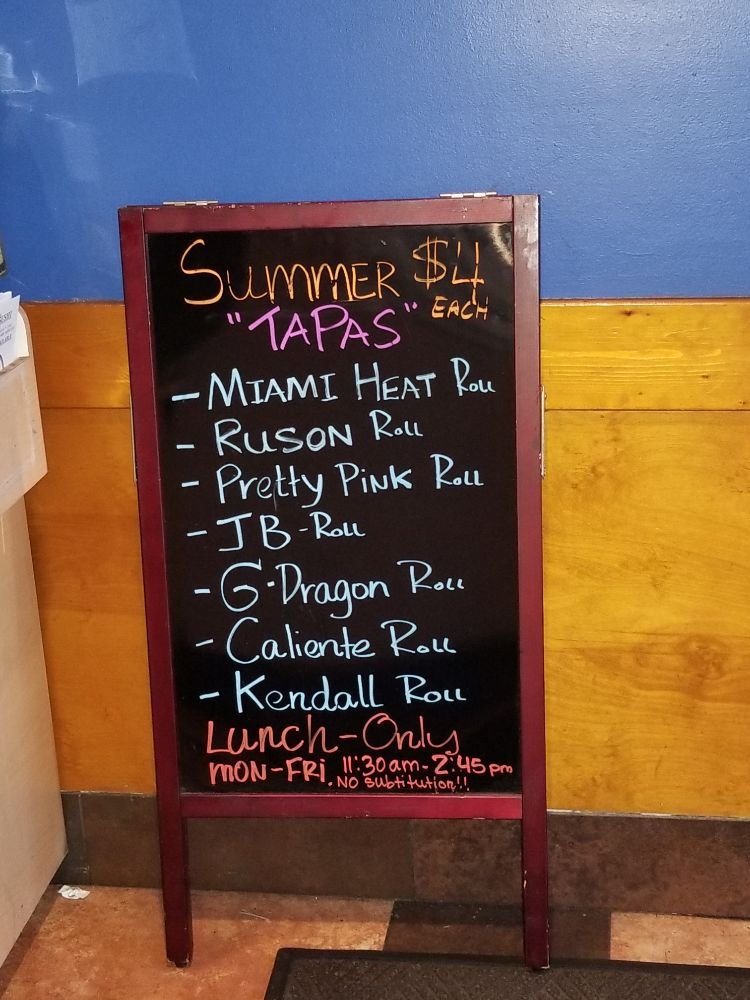 SUMMER $4
EACH
"TAPAS"
- MIAMI HEAT ROLL
- RUSON ROLL
- Pretty PiNK ROLL
- JB-ROLL
- G·Dragon ROLL
- Caliente ROLL
- Kendall ROLL
Lunch-Only
MON-FRi. 11:30am-2:45pm
NO subtitution!!